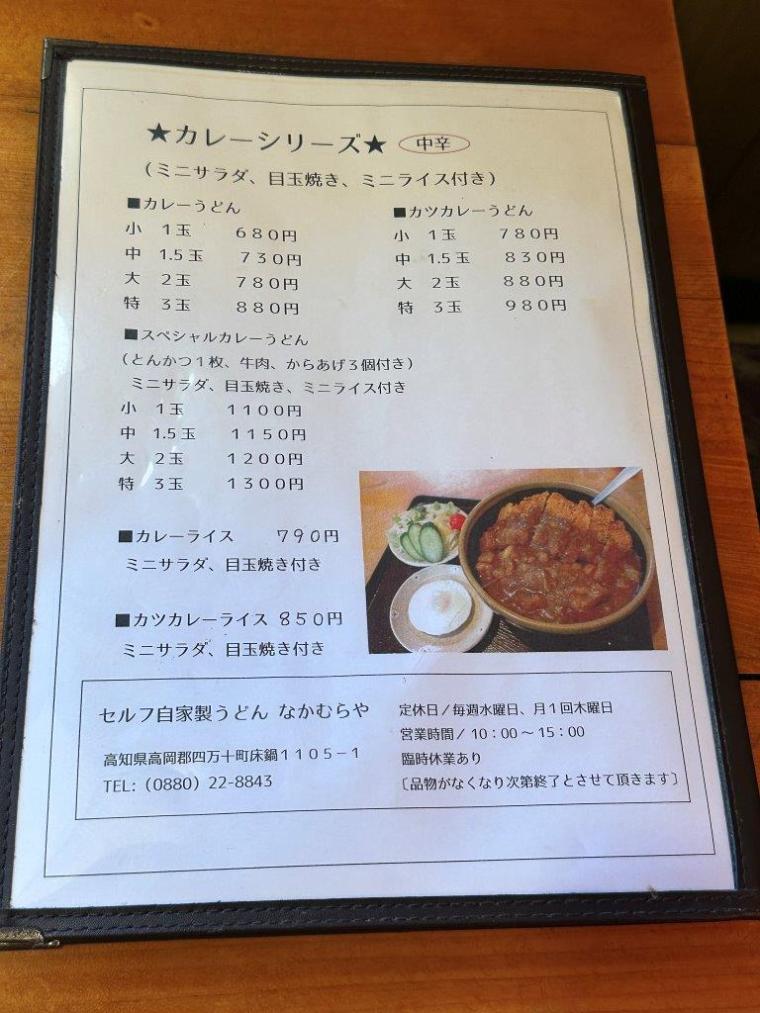 ★カレーシリーズ★ 中辛
(ミニサラダ、目玉焼き、ミニライス付き)
■カレーうどん
小 1玉 680円
中 1.5玉 730円
大 2玉 780円
特 3玉 880円
■カツカレーうどん
小 1玉 780円
中 1.5玉 830円
大 2玉 880円
特 3玉 980円
■スペシャルカレーうどん
(とんかつ1枚、牛肉、からあげ3個付き)
ミニサラダ、目玉焼き、ミニライス付き
小 1玉 1100円
中 1.5玉 1150円
大 2玉 1200円
特 3玉 1300円
■カレーライス 790円
ミニサラダ、目玉焼き付き
■カツカレーライス 850円
ミニサラダ、目玉焼き付き
セルフ自家製うどん なかむらや
高知県高岡郡四万十町床鍋1105-1
TEL:(0880)22-8843
定休日/毎週水曜日、月1回木曜日
営業時間/10:00~15:00
臨時休業あり
〔品物がなくなり次第終了とさせて頂きます〕